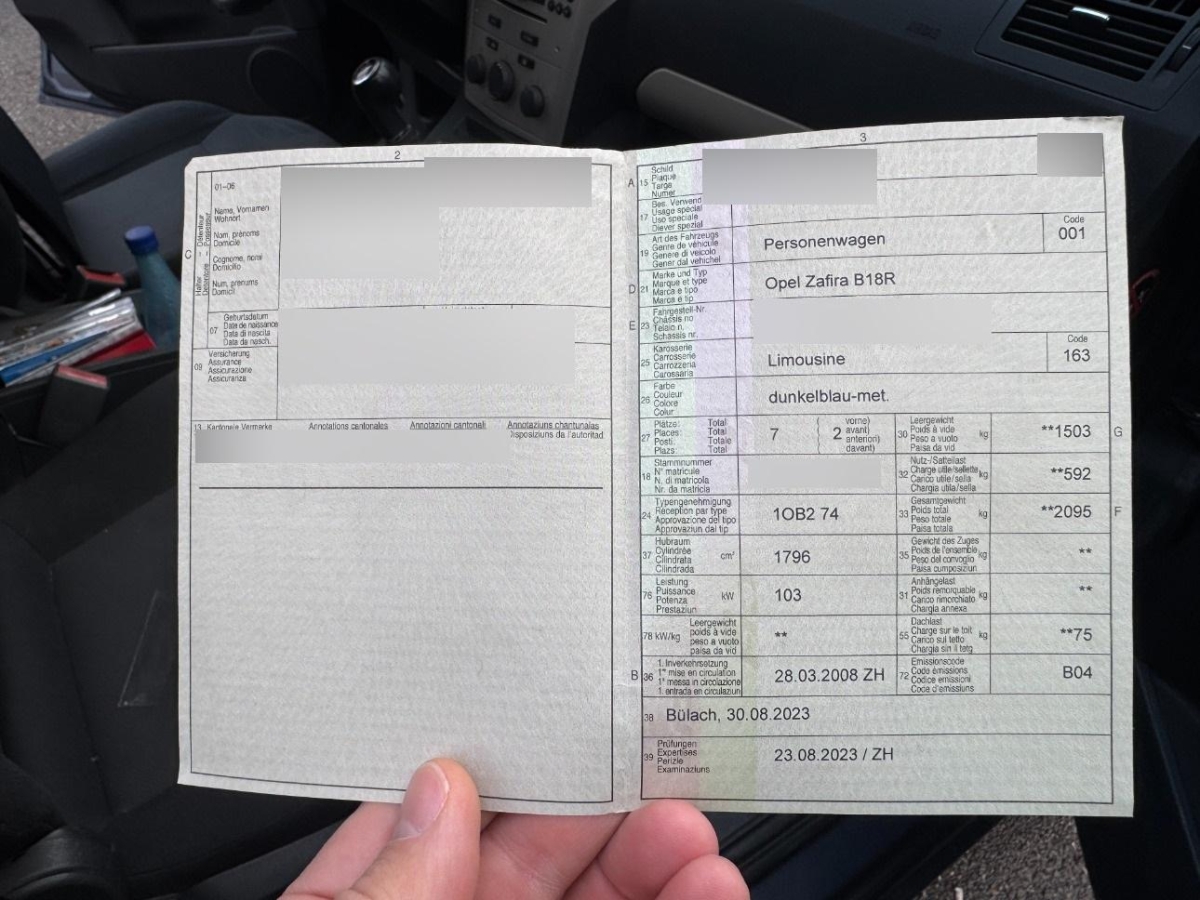 2
01-06
Name, Vornamen
Wohnort
Nom, prénoms
Domicile
Cognome, nomi
Domicilio
Num, prenums
Domicil
C
Halter Détenteur
Detentore Possessur
07
Geburtsdatum
Date de naissance
Data di nascita
Data da nasch.
09
Versicherung
Assurance
Assicurazione
Assicuranza
13 Kantonale Vermerke
Annotations cantonales
Annotazioni cantonali
Annotaziuns chantunalas
Disposiziuns da l'autoritad
3
A 15
Schild
Plaque
Targa
Numer
17
Bes. Verwend
Usage spécial
Uso speciale
Diever spezial
19
Art des Fahrzeugs
Genre de véhicule
Genere di veicolo
Gener dal vehichel
Personenwagen
Code
001
D 21
Marke und Typ
Marque et type
Marca e tipo
Marca e tip
Opel Zafira B18R
E 23
Fahrgestell-Nr.
Châssis no
Telaio n.
Schassis nr.
25
Karosserie
Carrosserie
Carrozzeria
Carossaria
Limousine
Code
163
26
Farbe
Couleur
Colore
Colur
dunkelblau-met.
27
Plätze: Total
Places: Total
Posti: Totale
Plazs: Total
7
( 2 vorne)
( avant)
( anteriori)
( davant)
30
Leergewicht
Poids à vide
Peso a vuoto
Paisa da vid
kg
**1503
G
18
Stammnummer
N° matricule
N. di matricola
Nr. da matricla
32
Nutz-/Sattellast
Charge utile/sellette
Carico utile/sella
Chargia utila/sella
kg
**592
24
Typengenehmigung
Réception par type
Approvazione del tipo
Approvaziun dal tip
1OB2 74
33
Gesamtgewicht
Poids total
Peso totale
Paisa totala
kg
**2095
F
37
Hubraum
Cylindrée
Cilindrata
Cilindrada
cm³
1796
35
Gewicht des Zuges
Poids de l'ensemble
Peso del convoglio
Paisa cumposiziun
kg
**
76
Leistung
Puissance
Potenza
Prestaziun
kW
103
31
Anhängelast
Poids remorquable
Carico rimorchiato
Chargia annexa
kg
**
78 kW/kg
Leergewicht
poids à vide
peso a vuoto
paisa da vid
**
55
Dachlast
Charge sur le toit
Carico sul tetto
Chargia sin il tetg
kg
**75
B 36
1. Inverkehrsetzung
1re mise en circulation
1a messa in circolazione
1. entrada en circulaziun
28.03.2008 ZH
72
Emissionscode
Code émissions
Codice emissioni
Code d'emissiuns
B04
38 Bülach, 30.08.2023
39
Prüfungen
Expertises
Perizie
Examinaziuns
23.08.2023 / ZH